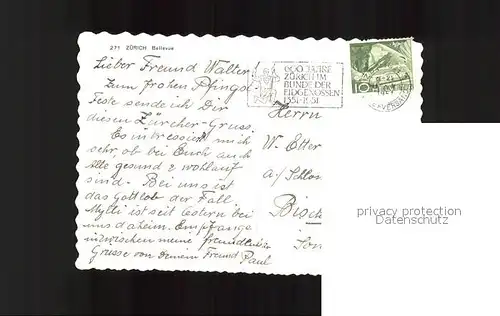 271 ZÜRICH Bellevue
Lieber Freund Walter!
Zum frohen Pfingst-
Feste sende ich Dir
diesen Zürcher-Gruss.
Es intressiert mich
sehr, ob bei Euch auch
Alle gesund & wohlauf
sind. Bei uns ist
das Gottlob der Fall.
ist seit Ostern bei
uns daheim. Empfange
inzwischen meine freundlichen
Grüsse von deinem Freund Paul
600 JAHRE
ZÜRICH IM
BUNDE DER
EIDGENOSSEN
1351-1951
10
Herrn
W. Etter
a/ Schlon
Bisch
privacy protection
Datenschutz